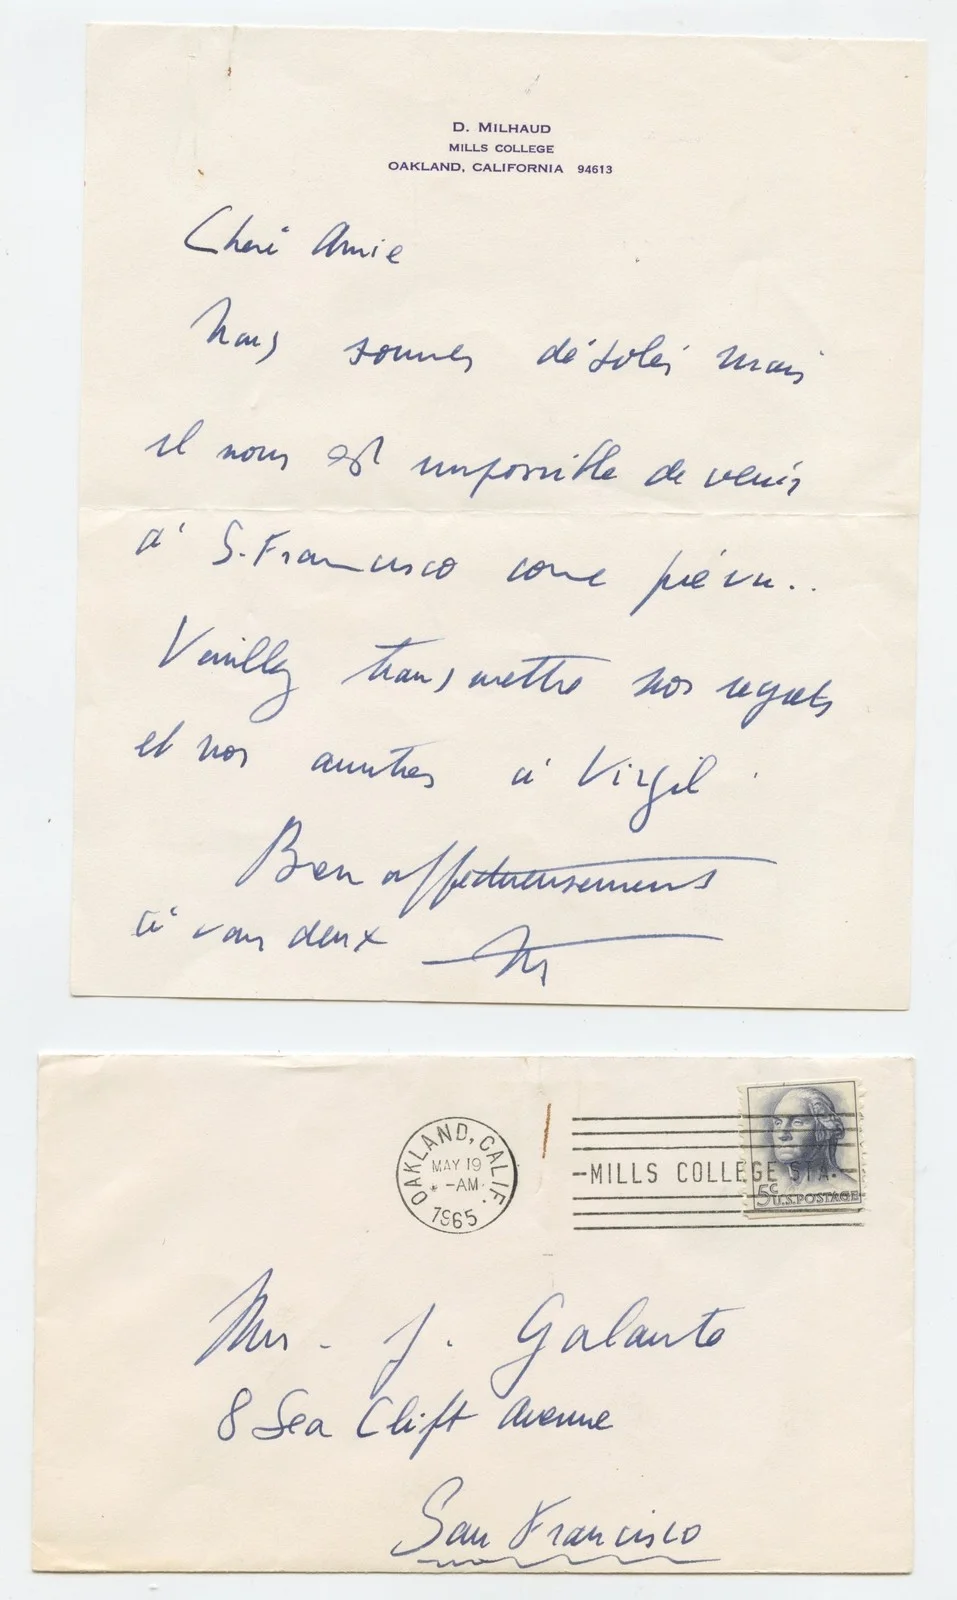 D. MILHAUD
MILLS COLLEGE
OAKLAND, CALIFORNIA 94613
Cheré Amie
Nous sommes désolés mais
il nous est impossible de venir
à S. Francisco come prévu..
Veuillez transmettre nos regrets
et nos amitiés à Virgil.
Bien affectueusement
à vous deux
OAKLAND, CALIF.
MAY 19
-AM
1965
-MILLS COLLEGE STA.-
5¢ U.S. POSTAGE
Mrs. J. Galante
8 Sea Clift Avenue
San Francisco